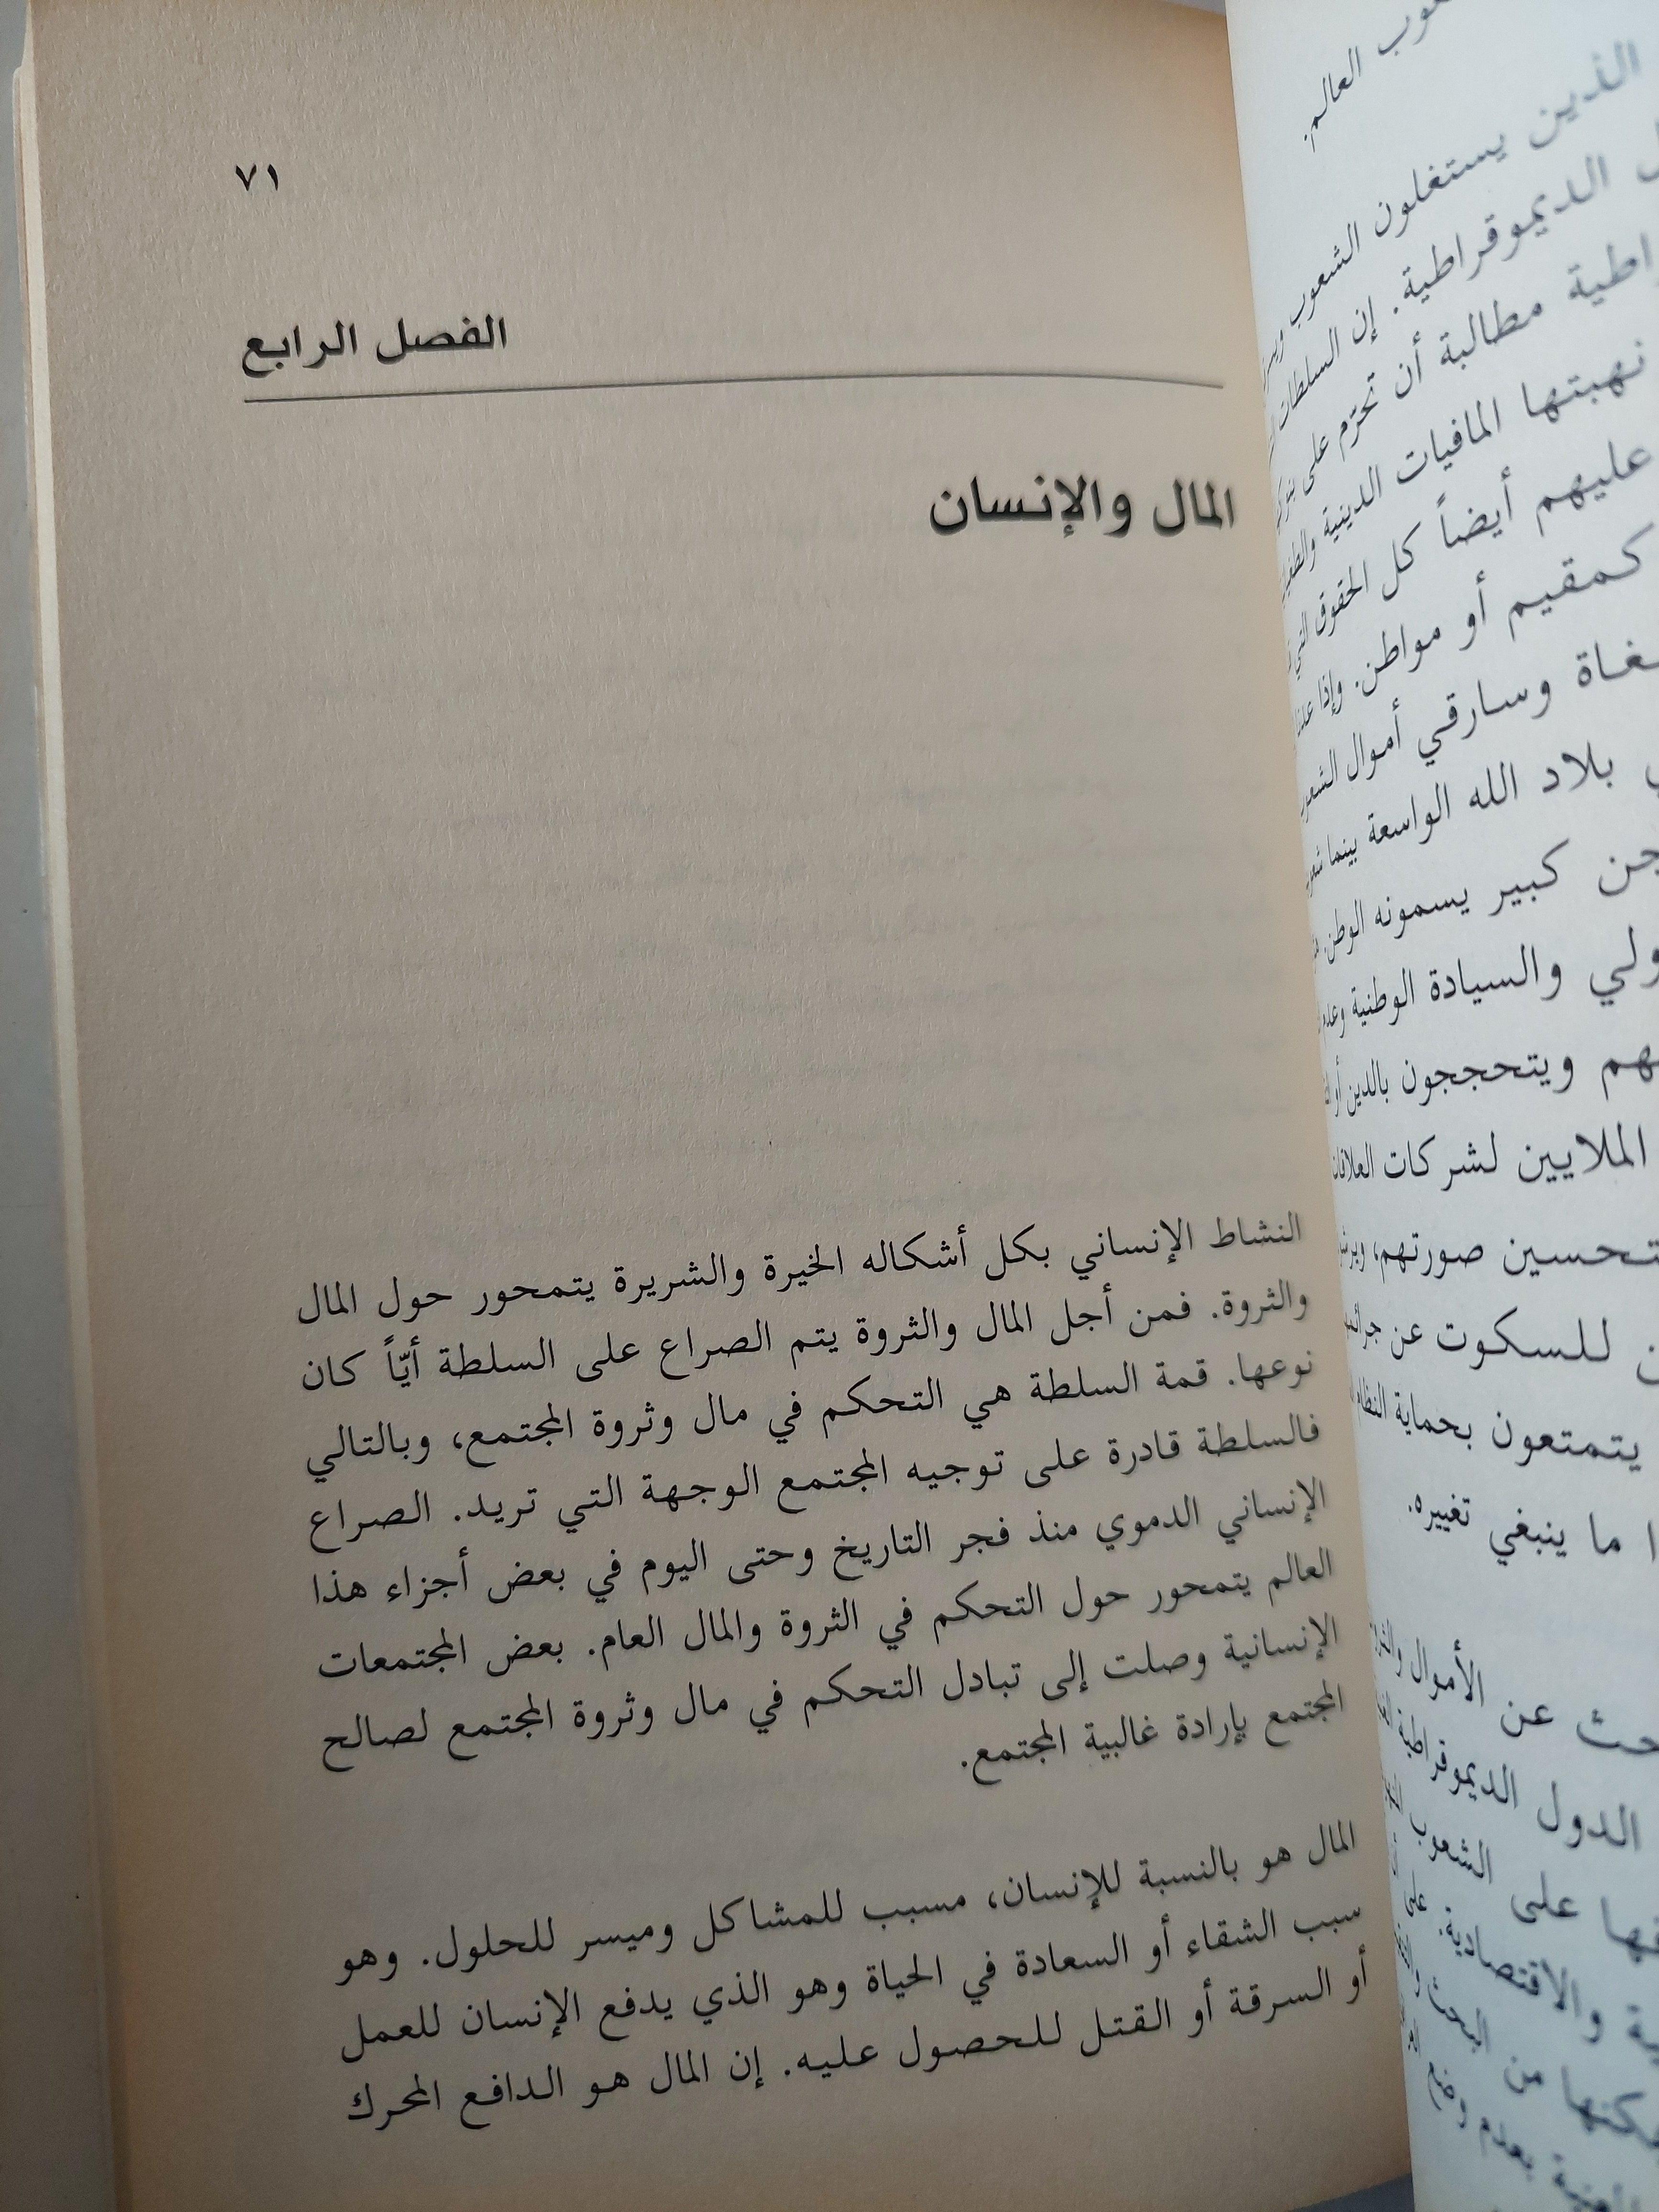 ٧١
الفصل الرابع
المال والإنسان
النشاط الإنساني بكل أشكاله الخيرة والشريرة يتمحور حول المال
والثروة. فمن أجل المال والثروة يتم الصراع على السلطة أيّاً كان
نوعها. قمة السلطة هي التحكم في مال وثروة المجتمع، وبالتالي
فالسلطة قادرة على توجيه المجتمع الوجهة التي تريد. الصراع
الإنساني الدموي منذ فجر التاريخ وحتى اليوم في بعض أجزاء هذا
العالم يتمحور حول التحكم في الثروة والمال العام. بعض المجتمعات
الإنسانية وصلت إلى تبادل التحكم في مال وثروة المجتمع لصالح
المجتمع بإرادة غالبية المجتمع.
المال هو بالنسبة للإنسان، مسبب للمشاكل وميسر للحلول. وهو
سبب الشقاء أو السعادة في الحياة وهو الذي يدفع الإنسان للعمل
أو السرقة أو القتل للحصول عليه. إن المال هو الدافع المحرك
العالم.
الذين يستغلون الشعوب
الديموقراطية. إن السلطات
مطالبة أن تحرّم على
نهبتها المافيات الدينية
عليهم أيضاً كل الحقوق
كمقيم أو مواطن. وإذا
وسارقي أموال
بلاد الله الواسعة بينما
كبير يسمونه الوطن
والسيادة الوطنية
ويتحججون بالدين أو
الملايين لشركات
صورتهم،
للسكوت عن
يتمتعون بحماية
ما ينبغي تغييره.
عن الأموال
الدول الديموقراطية
على الشعوب
والاقتصادية.
من